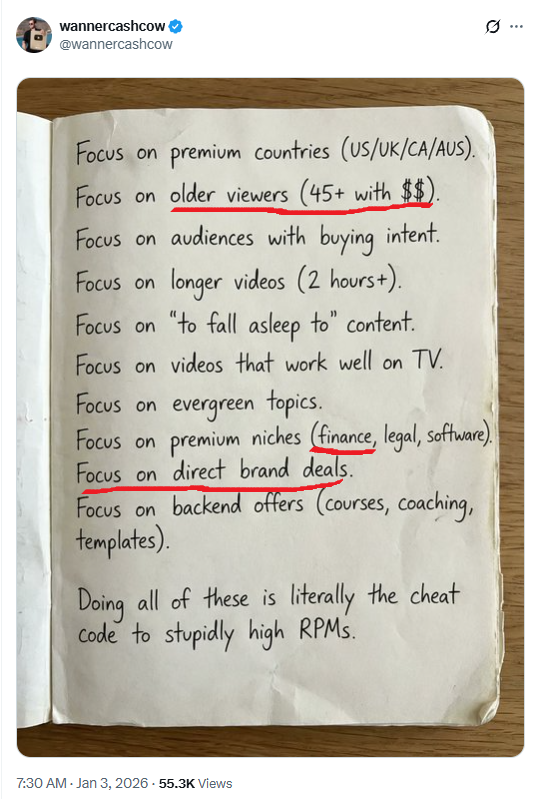 wannercashcow
@wannercashcow
Focus on premium countries (US/UK/CA/AUS).
Focus on older viewers (45+ with $$).
Focus on audiences with buying intent.
Focus on longer videos (2 hours+).
Focus on “to fall asleep to” content.
Focus on videos that work well on TV.
Focus on evergreen topics.
Focus on premium niches (finance, legal, software).
Focus on direct brand deals.
Focus on backend offers (courses, coaching,
templates).
Doing all of these is literally the cheat
code to stupidly high RPMs.
7:30 AM · Jan 3, 2026 · 55.3K Views